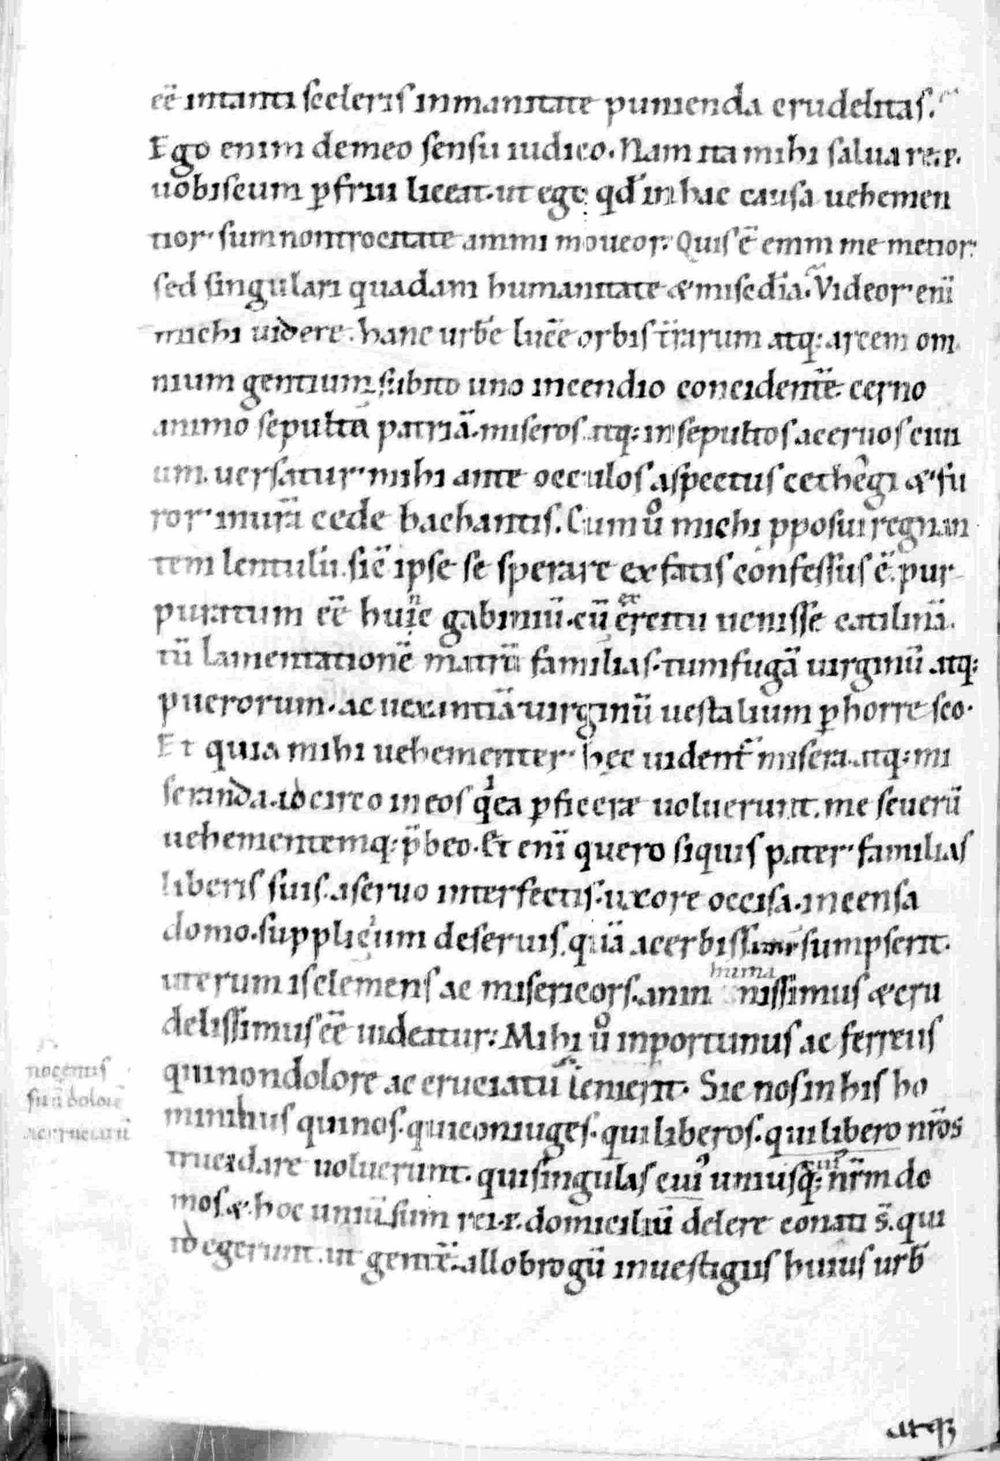 eē intanti sceleris inmanitate punienda crudelitas.
Ego enim demeo sensu iudico. Nam ita mihi salua re.p.
uobiscum ꝑfrui liceat. ut ego qđ in hac causa uehemen
tior sum non trocitate animi moueor. Quis ē enim me mitior
sed singulari quadam humanitate & misēdia. Videor enī
michi uidere hanc urbē lucē orbis t̄rarum atq; arcem om
nium gentium subito uno incendio concidentē. cerno
animo sepultā patriā. miseros atq; insepultos aceruos ciui
um. uersatur mihi ante occulos aspectus cethegi & fu
ror inurā cede bachantis. Cum ů michi pposui regnan
tem lentulū. sic̄ ipse se sperare ex fatis confessus ē. pur
puratum eē huic gabiniū. cū exercitu uenisse catilinā.
tū lamentationē matrū familias. tum fugā uirginū atq;
puerorum. ac uexantiā uirginū uestalium ꝑhorresco.
Et quia mihi uehementer hęc uident̄ misera. atq; mi
seranda. idcirco in eos q̇ ea ꝑficeræ uoluerunt. me seuerū
uehementemq; p̄beo. Et enī quero siquis pater familias
liberis suis. aseruo interfectis. uxore occisa. incensa
domo. supplicium deseruis. quā acerbissime sumpserit.
uterum is clemens ac misericors. an in huma nissimus & cru
delissimus eē uideatur. Mihi ů inportunus ac ferreus
qui non dolore ac cruciatu lenierit. Sic nos in his ho
minibus qui nos. qui coniuges. qui liberos. qui libero nr̄os
trucidare uoluerunt. qui singulas cui᾽ uniusq; nr̄m do
mos. &. hoc uniū sum rei.p. domiciliū delere conati s̄. qui
id egerunt. ut gentē allobrogū inuestigiis huius urb̄
nocentis
suū dolorē
ac cruciatū
atq;